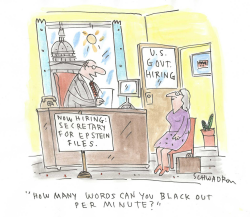 U.S.
GOVT.
HIRING
NOW HIRING:
SECRETARY
FOR EPSTEIN
FILES.
SCHWADRON
"HOW MANY WORDS CAN YOU BLACK OUT
PER MINUTE?"